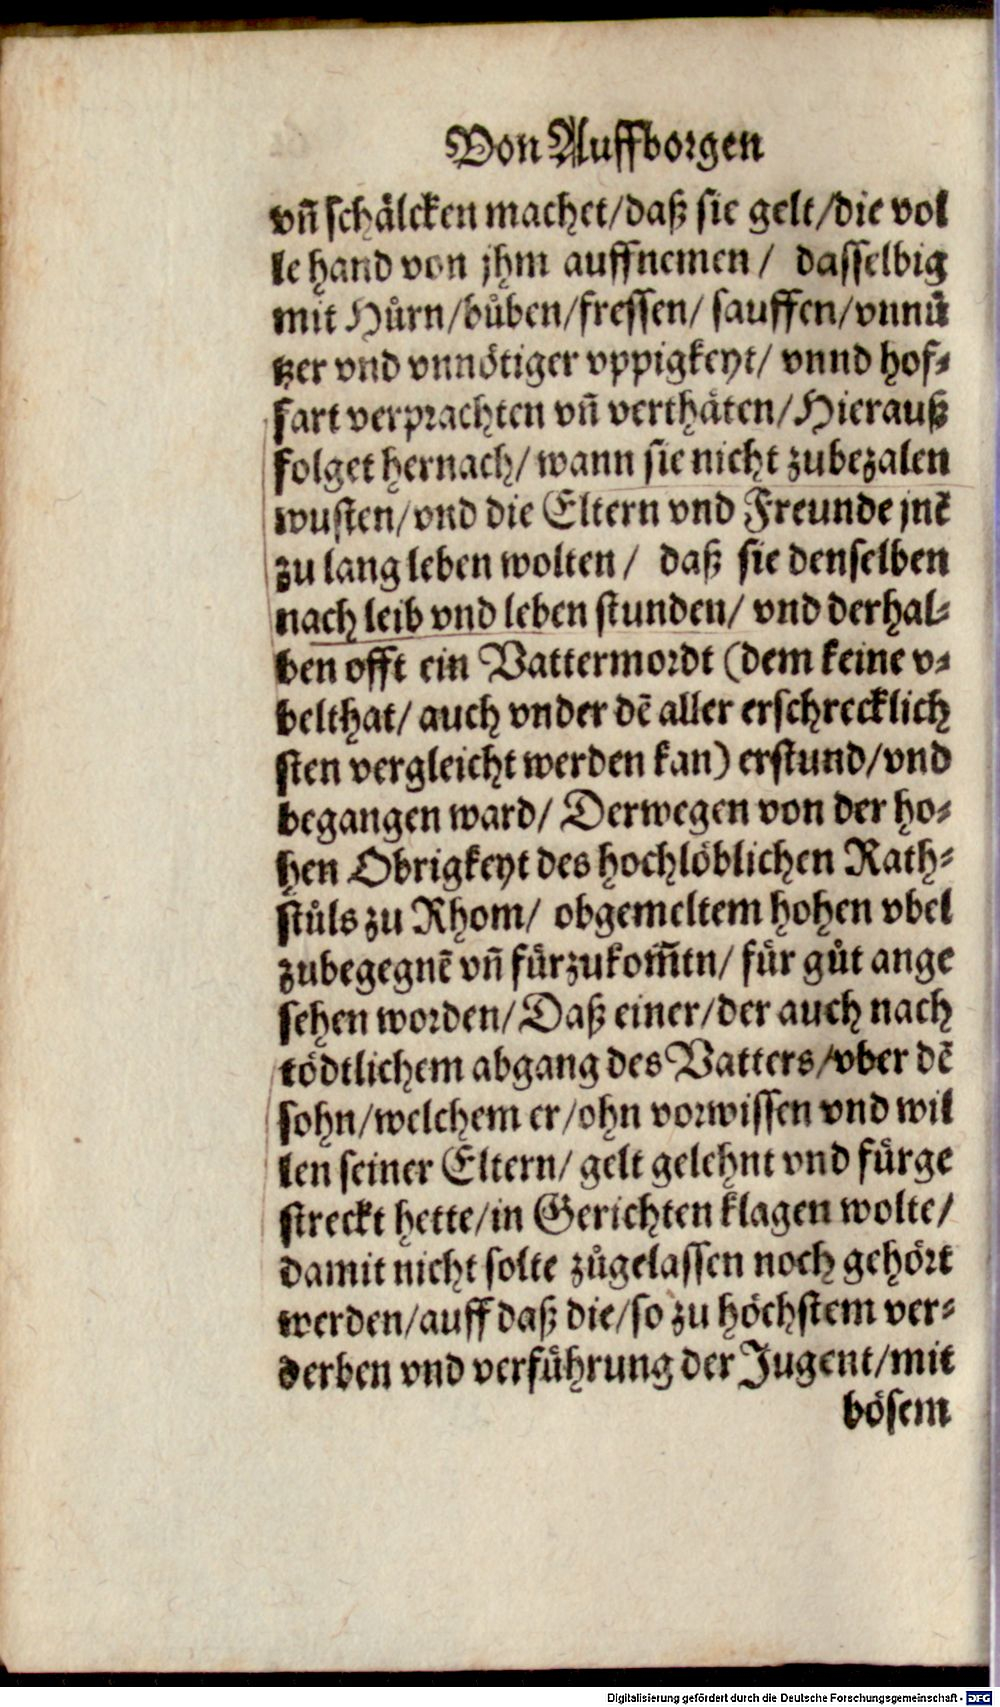 Von Auffborgen
vñ schälcken machet/daß sie gelt/die vol
le hand von jhm auffnemen/ dasselbig
mit Hůrn/bůben/fressen/ sauffen/vnnü
tzer vnd vnnötiger vppigkeyt/ vnnd hof-
fart verprachten vñ verthäten/Hierauß
folget hernach/ wann sie nicht zubezalen
wusten/vnd die Eltern vnd Freunde jnē
zu lang leben wolten/ daß sie denselben
nach leib vnd leben stunden/ vnd derhal-
ben offt ein Vattermordt (dem keine v-
belthat/ auch vnder dē aller erschrecklich
sten vergleicht werden kan) erstund/vnd
begangen ward/ Derwegen von der ho-
hen Obrigkeyt des hochlöblichen Rath-
stůls zu Rhom/ obgemeltem hohen vbel
zubegegnē vñ fürzukom̃en/ für gůt ange
sehen worden/Daß einer/der auch nach
tödtlichem abgang des Vatters/vber dē
sohn/welchem er/ohn vorwissen vnd wil
len seiner Eltern/ gelt gelehnt vnd fürge
streckt hette/in Gerichten klagen wolte/
damit nicht solte zůgelassen noch gehört
werden/auff daß die/so zu höchstem ver-
derben vnd verführung der Jugent/mit
bösem
Digitalisierung gefördert durch die Deutsche Forschungsgemeinschaft - DFG